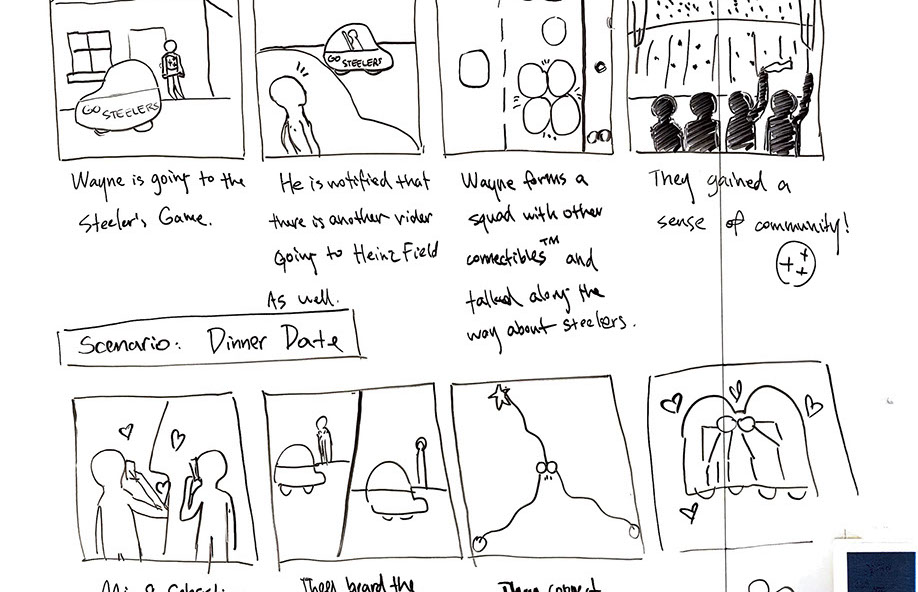 GO STEELERS
GO STEELERS
Wayne is going to the
Steeler's Game.
He is notified that
there is another rider
going to Heinz Field
As well.
Wayne forms a
squad with other
connectibles™ and
talked along the
way about steelers.
They gained a
sense of community!
Scenario: Dinner Date
They board the
They connect